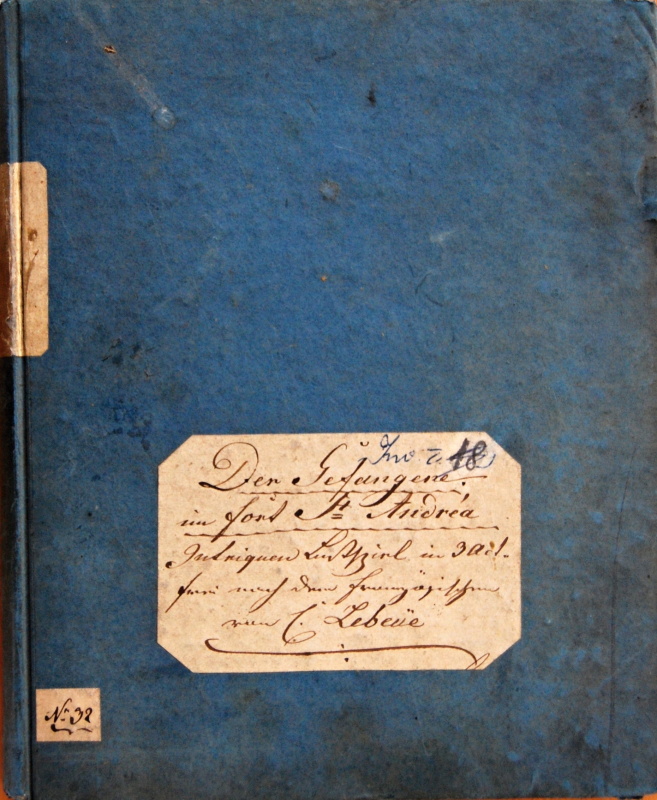 Inv. 48
Der Gefangene
im fort St Andréa
Intriguen Lustspiel in 3 Act.
frei nach dem französischen
von C. Lebeüe
No 32